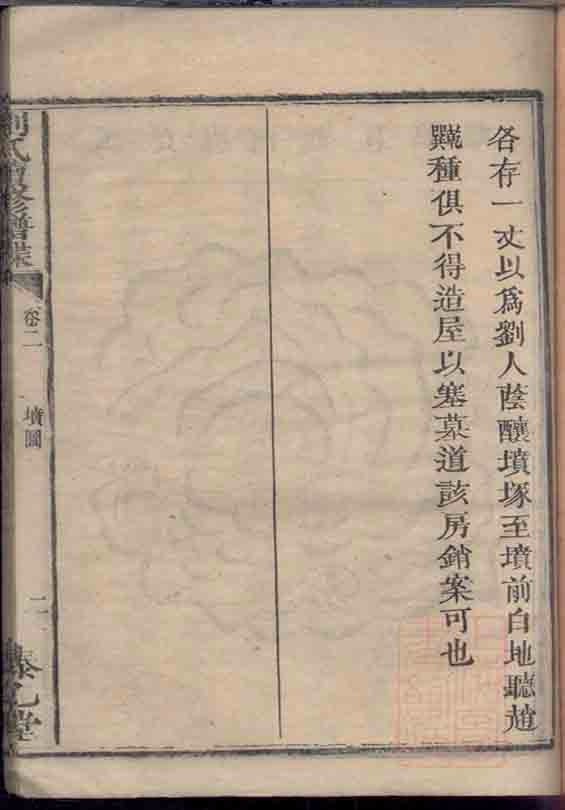 各存一丈以爲劉人蔭釀墳塚至墳前白地聽趙
種俱不得造屋以塞墓道該房銷案可也
劉氏 修譜牒
卷二
墳圖
二
堂